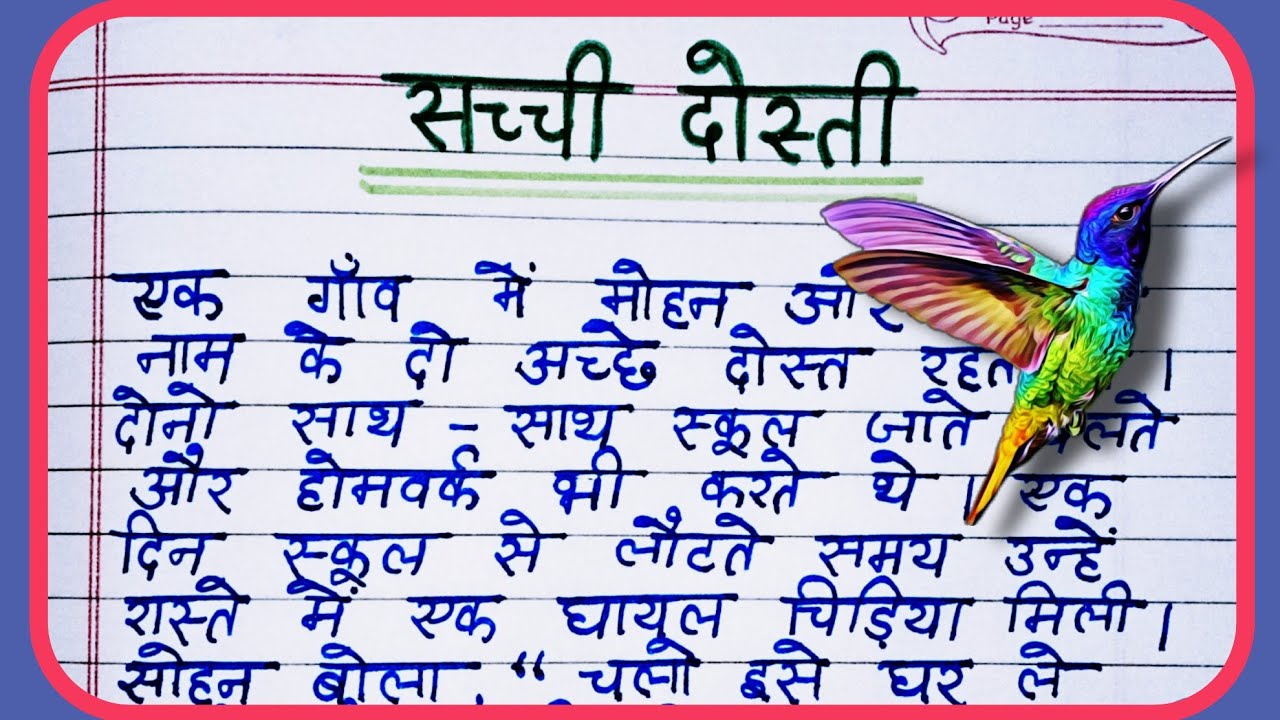 Page
सच्ची दोस्ती
एक गाँव में मोहन और
नाम के दो अच्छे दोस्त रहते ।
दोनो साथ - साथ स्कूल जाते खेलते
और होमवर्क भी करते थे । एक
दिन स्कूल से लौटते समय उन्हें
रास्ते में एक घायल चिड़िया मिली ।
सोहन बोला , “ चलो इसे घर ले